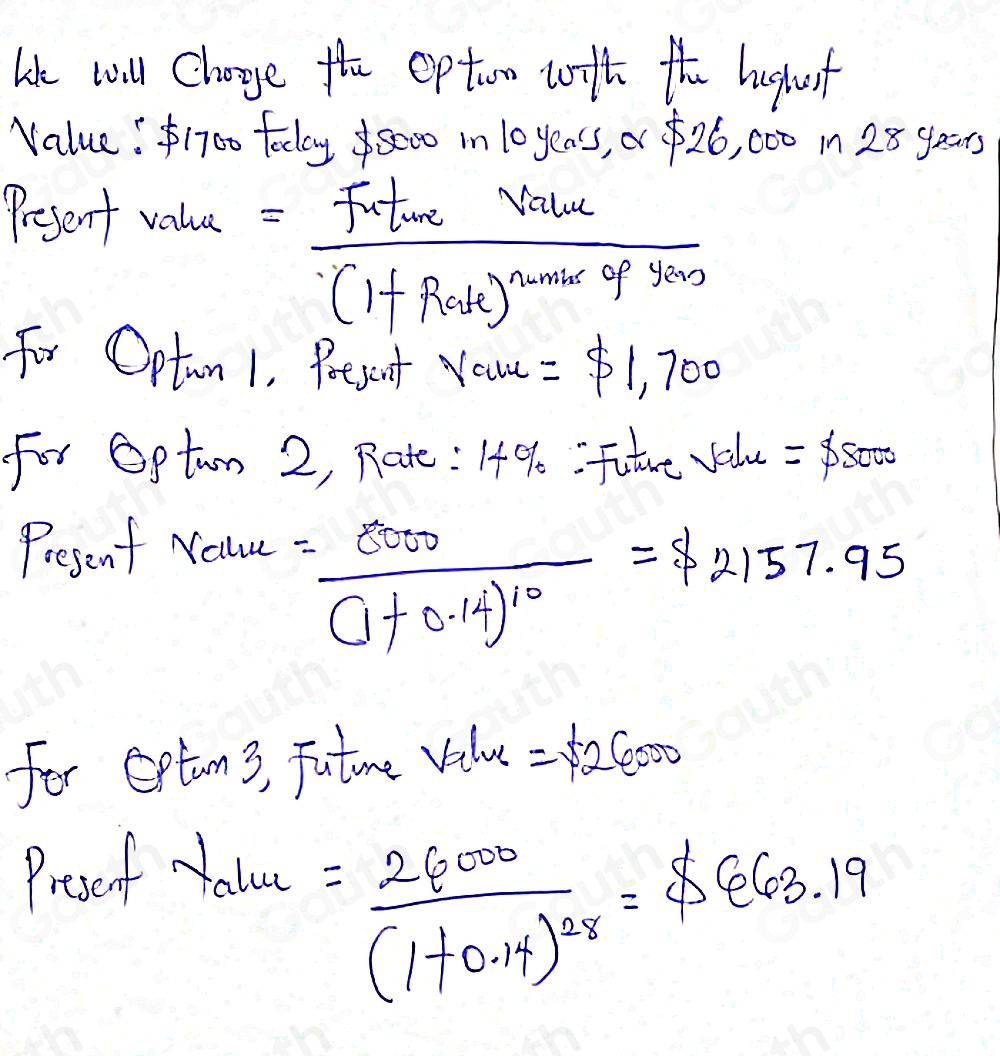 We will Choose the Option with the highest
Value: $1700 today, $8000 in 10 years, or $26,000 in 28 years
Present value = Future Value / (1+ Rate)^number of years
For Option 1, Present Value = $1,700
For Option 2, Rate: 14% ∵ Future Value = $8000
Present Value = 8000 / (1+0.14)^10 = $2157.95
For Option 3, Future Value = $26000
Present Value = 26000 / (1+0.14)^28 = $663.19
Gauth